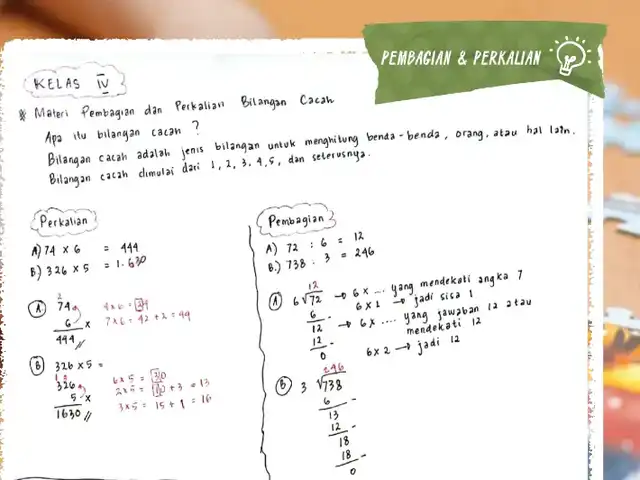 PEMBAGIAN & PERKALIAN
KELAS IV
* Materi Pembagian dan Perkalian Bilangan Cacah
Apa itu bilangan cacah ?
Bilangan cacah adalah jenis bilangan untuk menghitung benda-benda, orang, atau hal lain.
Bilangan cacah dimulai dari 1, 2, 3, 4, 5, dan seterusnya.
Perkalian
A) 74 x 6 = 444
B.) 326 x 5 = 1.630
A
2
74
6 x
444 //
4x6 = 24
7x6 = 42 + 2 = 44
B 326 x 5 =
1 3
326
5 x
1630 //
6x5 = 30
2x5 = 10 + 3 = 13
3x5 = 15 + 1 = 16
Pembagian
A) 72 : 6 = 12
B.) 738 : 3 = 246
A
12
6 √72 → 6 x ... yang mendekati angka 7
6 - 6 x 1 → jadi sisa 1
12 → 6 x .... yang jawaban 12 atau
mendekati 12
12 -
0 6 x 2 → jadi 12
B
246
3 √738
6 -
13
12 -
18
18 -
0